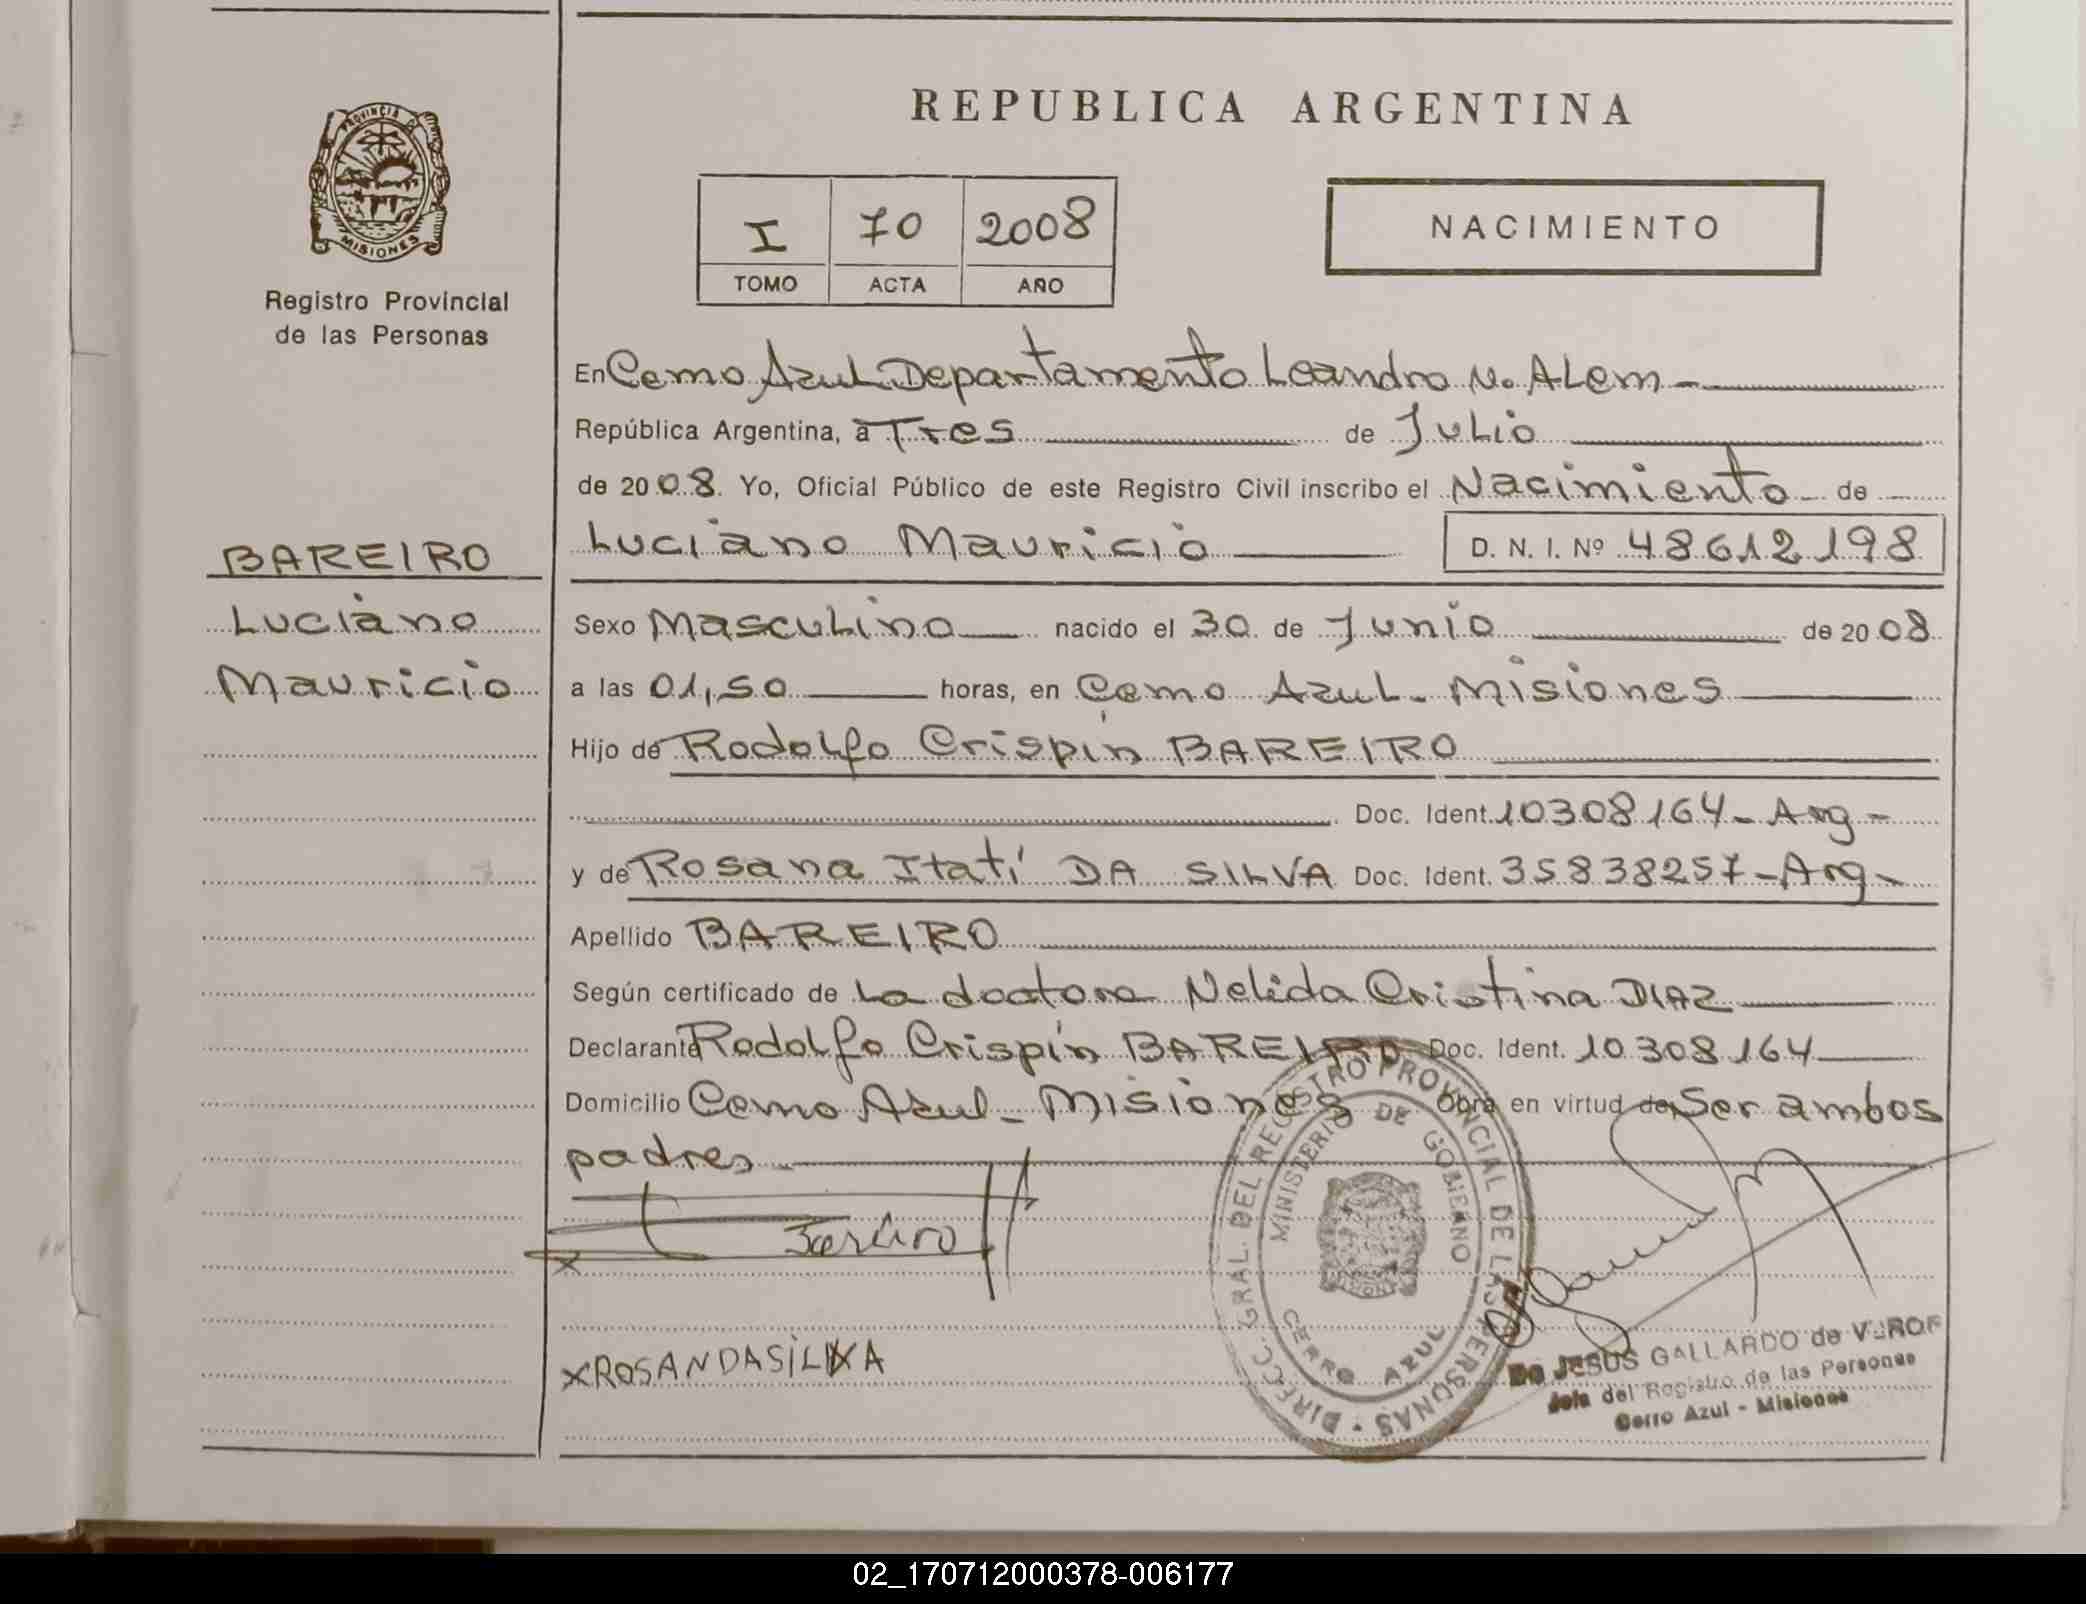 REPUBLICA ARGENTINA
PROVINCIA DE
MISIONES
Registro Provincial
de las Personas
I 70 2008
TOMO ACTA AÑO
NACIMIENTO
En Cerro Azul Departamento Leandro N. Alem -
República Argentina, a Tres de Julio
de 2008. Yo, Oficial Público de este Registro Civil inscribo el Nacimiento de
Luciano Mauricio D. N. I. Nº 48612198
BAREIRO
Luciano
Mauricio
Sexo Masculino nacido el 30 de Junio de 2008
a las 01,50 horas, en Cerro Azul - Misiones
Hijo de Rodolfo Crispín BAREIRO
Doc. Ident. 10308164 - Arg -
y de Rosana Itatí DA SILVA Doc. Ident. 35838257 - Arg -
Apellido BAREIRO
Según certificado de la doctora Nelida Cristina DIAZ
Declarante Rodolfo Crispín BAREIRO Doc. Ident. 10.308.164
Domicilio Cerro Azul - Misiones Obra en virtud de Ser ambos
padres
x Bareiro
x ROSANDASILVA
DIRECC. GRAL. DEL REGISTRO PROVINCIAL DE LAS PERSONAS
MINISTERIO DE GOBIERNO
CERRO AZUL
JESUS GALLARDO de
Jefa del Registro de las Personas
Cerro Azul - Misiones
02_170712000378-006177